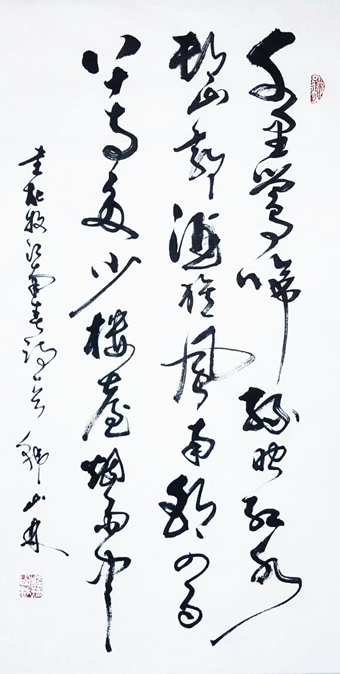 千里鶯啼綠映紅水
村山郭酒旗風南朝四百
八十寺多少樓臺烟雨中
書杜牧江南春詩 山林